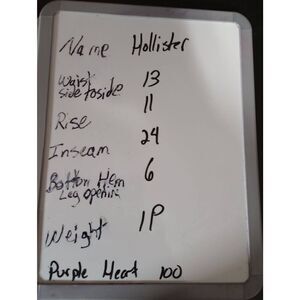 Name Hollister
Waist 13
side to side
Rise 11
Inseam 24
Bottom Hem 6
Leg opening
Weight 1P
Purple Heart 100